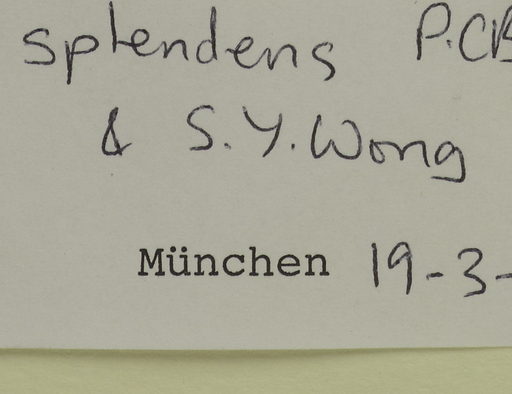 splendens P.C
& S.Y. Wong
München 19-3-